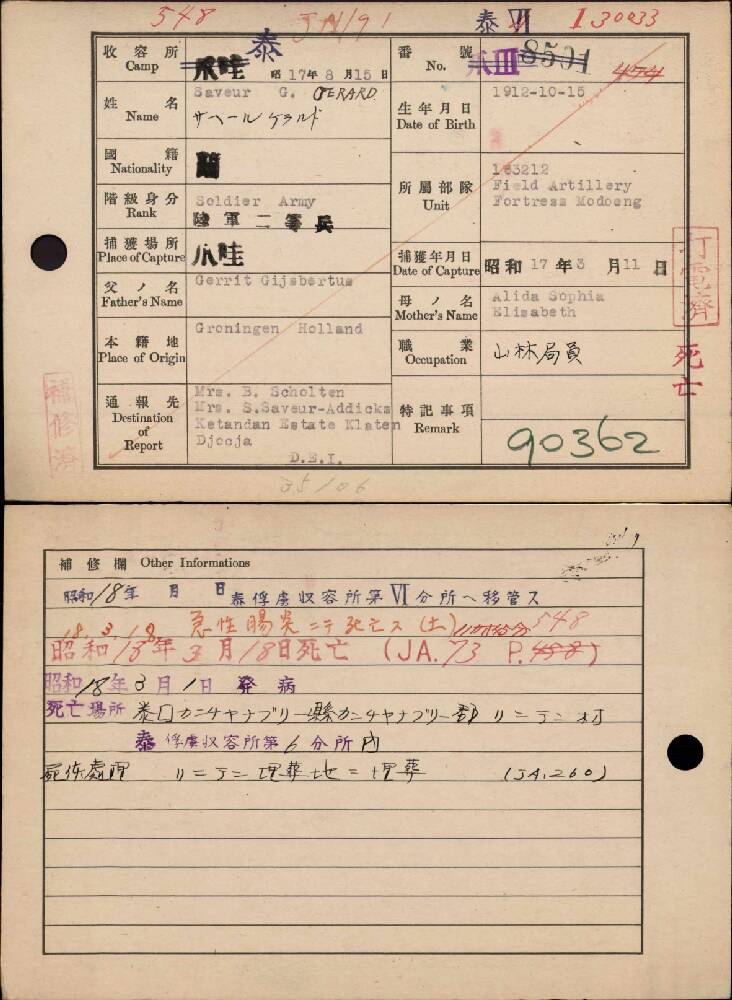 548 JA/91 泰VI I 30033
收容所 Camp 爪哇 泰 昭17年8月15日
番號 No. 爪III 8501 474
姓名 Name Saveur G. GERARD
サベール ゲラルド
生年月日 Date of Birth 1912-10-15
國籍 Nationality 蘭
階級身分 Rank Soldier Army
陸軍二等兵
所屬部隊 Unit 163212
Field Artillery
Fortress Modoeng
捕獲場所 Place of Capture 爪哇
捕獲年月日 Date of Capture 昭和17年3月11日
父ノ名 Father's Name Gerrit Gijsbertus
母ノ名 Mother's Name Alida Sophia
Elisabeth
本籍地 Place of Origin Groningen Holland
職業 Occupation 山林局員
通報先 Destination of Report
Mrs. B. Scholten
Mrs. S.Saveur-Addicks
Ketandan Estate Klaten
Djocja
D.E.I.
特記事項 Remark
90362
打電濟
死亡
補修濟
35/06
補修欄 Other Informations
昭和18年 月 日 泰俘虜収容所第VI分所ヘ移管ス
18.3.18 急性腸炎ニテ死亡ス(土) 548
昭和18年3月18日死亡 (JA.73 P.498)
昭和18年3月1日 発病
死亡場所 泰国カンチヤナブリー縣カンチヤナブリー郡リンテン村
泰俘虜収容所第6分所内
屍体處理 リンテン埋葬地ニ埋葬 (JA.260)